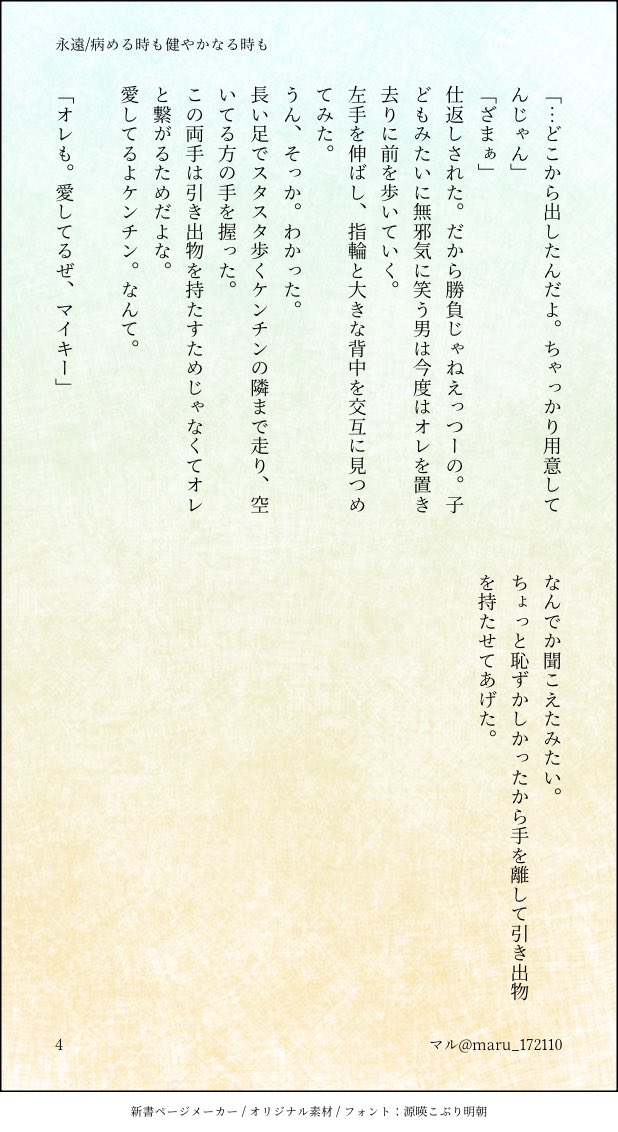 永遠/病める時も健やかなる時も
「…どこから出したんだよ。ちゃっかり用意して
んじゃん」
「ざまぁ」
仕返しされた。だから勝負じゃねえっつーの。子
どもみたいに無邪気に笑う男は今度はオレを置き
去りに前を歩いていく。
左手を伸ばし、指輪と大きな背中を交互に見つめ
てみた。
うん、そっか。わかった。
長い足でスタスタ歩くケンチンの隣まで走り、空
いてる方の手を握った。
この両手は引き出物を持たすためじゃなくてオレ
と繋がるためだよな。
愛してるよケンチン。なんて。
「オレも。愛してるぜ、マイキー」
なんでか聞こえたみたい。
ちょっと恥ずかしかったから手を離して引き出物
を持たせてあげた。
4
マル@maru_172110
新書ページメーカー / オリジナル素材 / フォント：源暎こぶり明朝